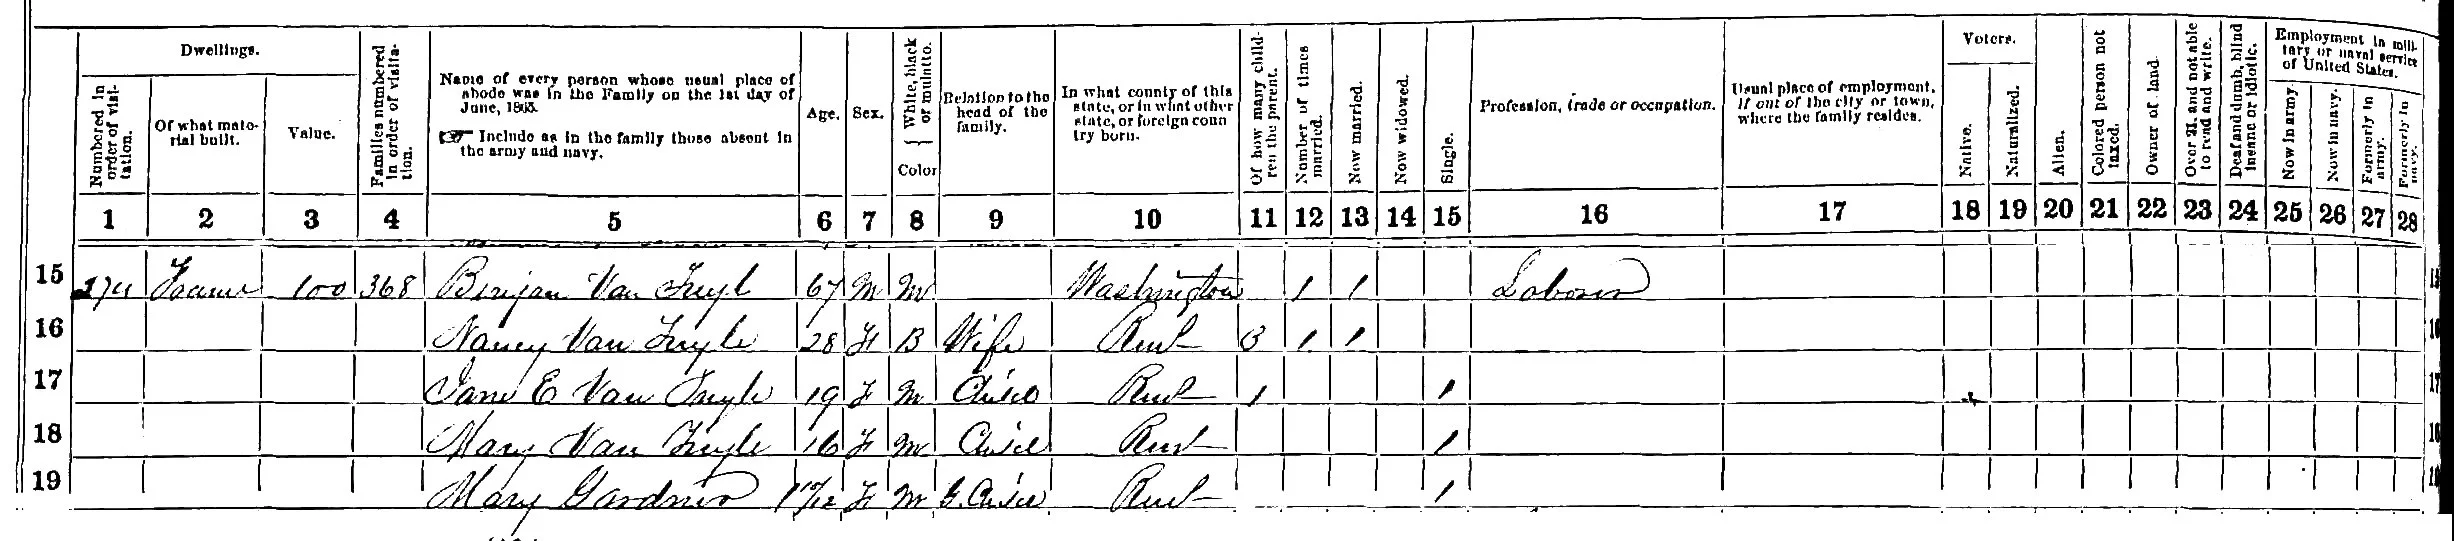 Dwellings.
Numbered in order of visitation.
Of what material built.
Value.
Families numbered in order of visitation.
Name of every person whose usual place of abode was in the Family on the 1st day of June, 1865.
Include as in the family those absent in the army and navy.
Age.
Sex.
White, black or mulatto.
Color
Relation to the head of the family.
In what county of this state, or in what other state, or foreign country born.
Of how many children the parent.
Number of times married.
Now married.
Now widowed.
Single.
Profession, trade or occupation.
Usual place of employment, if out of the city or town, where the family resides.
Voters.
Native.
Naturalized.
Alien.
Colored person not taxed.
Owner of land.
Over 21, and not able to read and write.
Deaf and dumb, blind insane or idiotic.
Employment in military or naval service of United States.
Now in army.
Now in navy.
Formerly in army.
Formerly in navy.
1 2 3 4 5 6 7 8 9 10 11 12 13 14 15 16 17 18 19 20 21 22 23 24 25 26 27 28
15 Frame 100 368 Van Tuyl 67 M M Washington 1 1 Laborer 15
16 Nancy Van Tuyle 28 F B Wife 3 1 1 16
17 Jane E Van Tuyle 19 F M Child 1 1 17
18 Mary Van Tuyle 16 F M Child 1 18
19 Mary Gardner F M G. Child 1